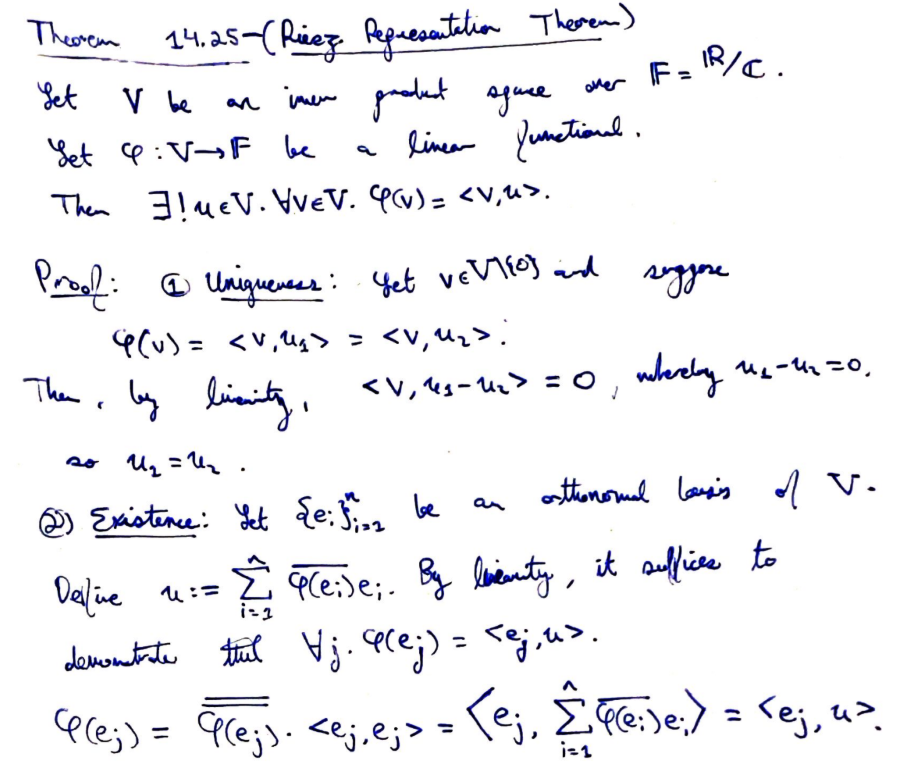 Theorem 14.25-(Riesz Representation Theorem)
Let V be an inner product space over 𝔽 = ℝ/ℂ.
Let φ : V→𝔽 be a linear functional.
Then ∃! u∈V. ∀v∈V. φ(v) = <v,u>.
Proof: ① Uniqueness: Let v∈V\{0} and suppose
φ(v) = <v,u₁> = <v,u₂>.
Then, by linearity, <v, u₁-u₂> = 0, whereby u₁-u₂=0,
so u₁ = u₂.
② Existence: Let {eᵢ}ⁿᵢ₌₁ be an orthonormal basis of V.
Define u := Σⁿᵢ₌₁ \overline{φ(eᵢ)}eᵢ. By linearity, it suffices to
demonstrate that ∀j. φ(eⱼ) = <eⱼ,u>.
φ(eⱼ) = \overline{\overline{φ(eⱼ)}}· <eⱼ,eⱼ> = ⟨eⱼ, Σⁿᵢ₌₁ \overline{φ(eᵢ)}eᵢ⟩ = <eⱼ, u>.